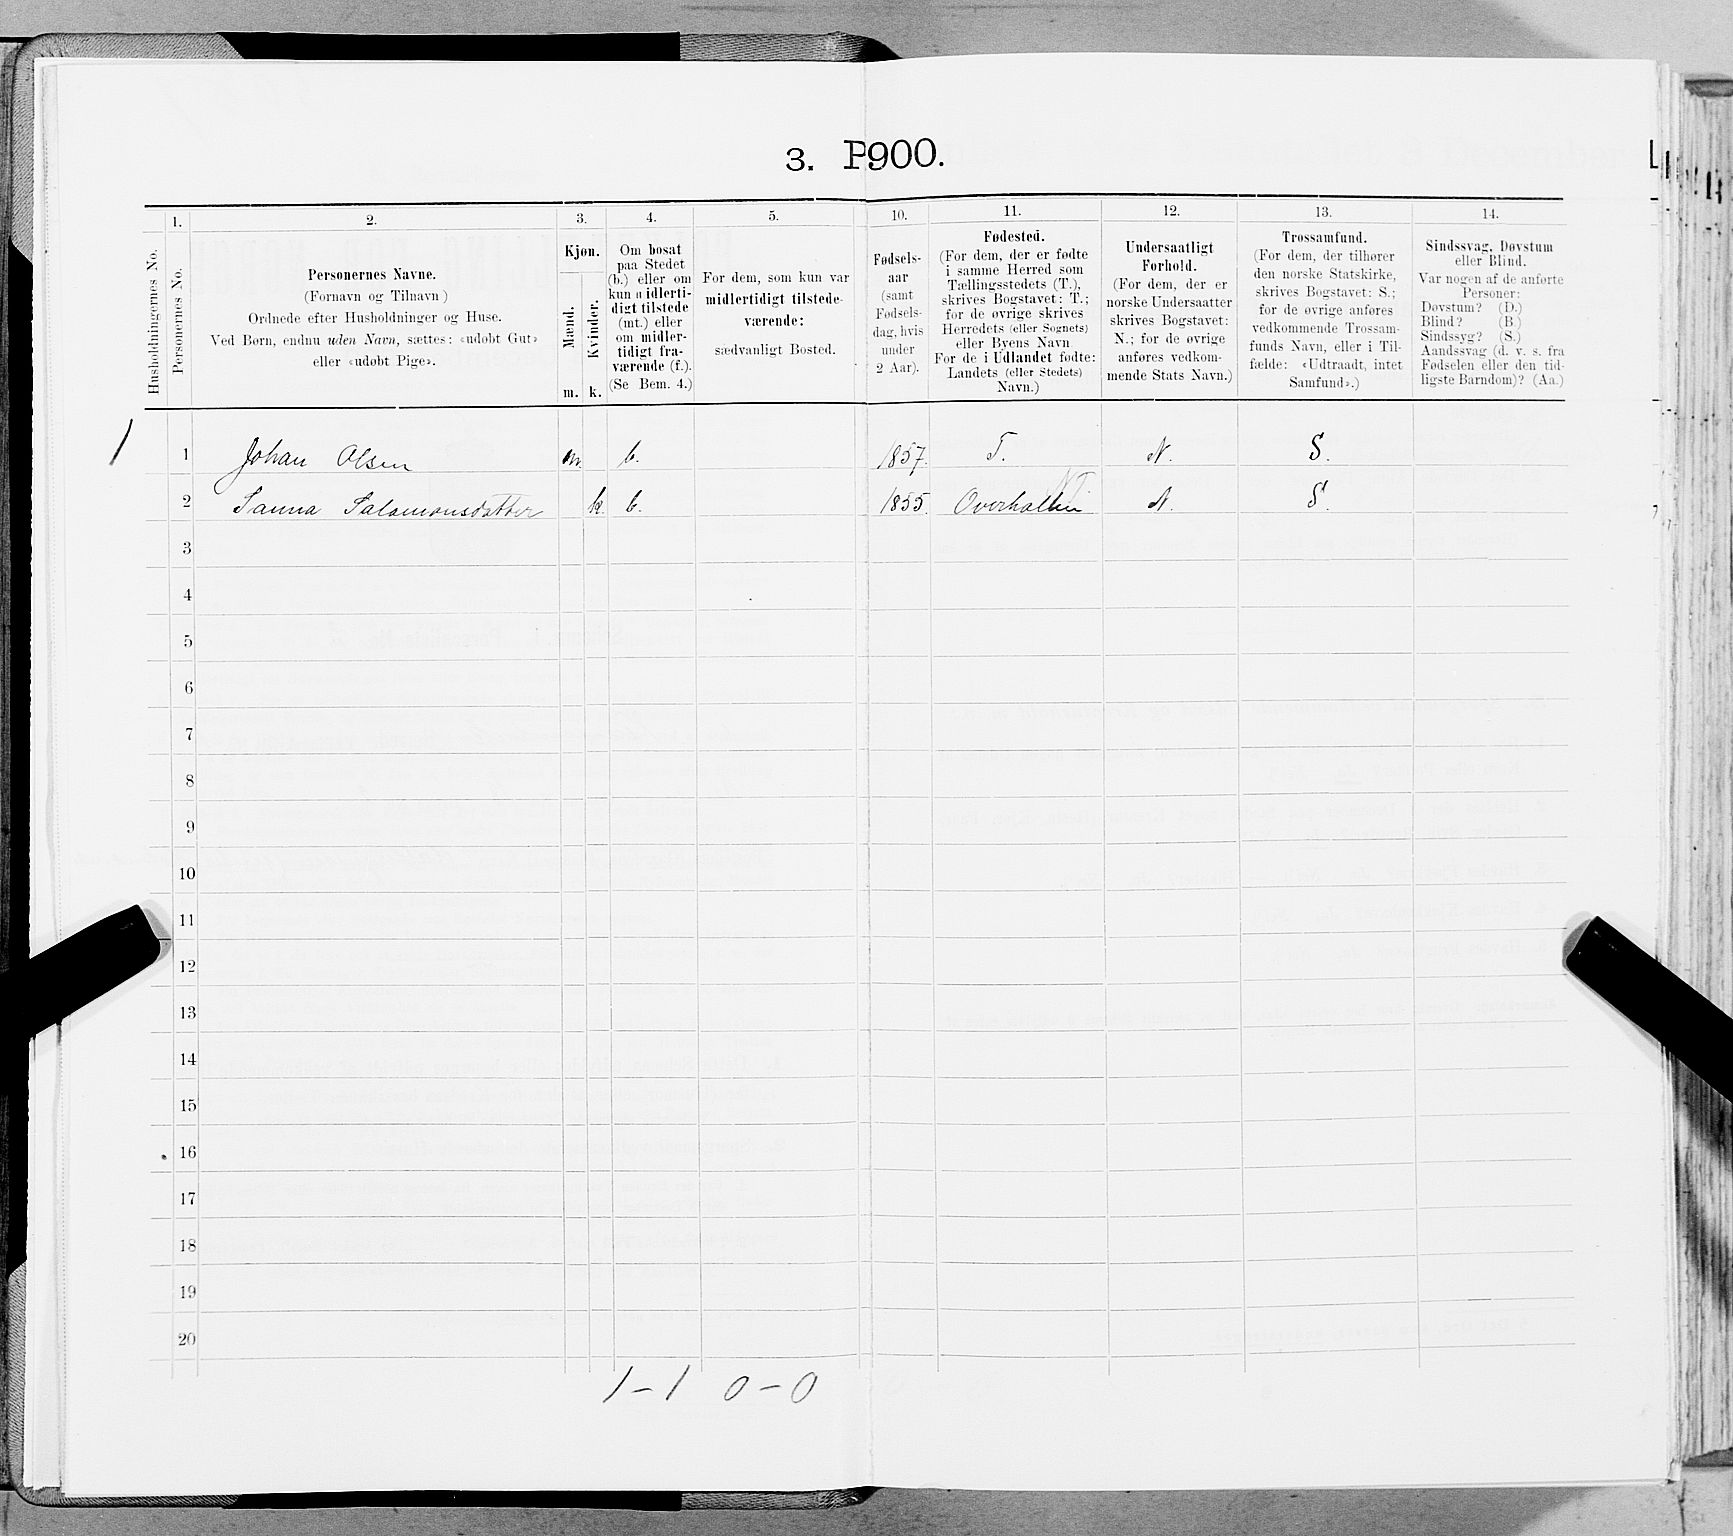 3. P900.
1.
2.
3.
4.
5.
10.
11.
12.
13.
14.
Husholdningernes No.
Personernes No.
Personernes Navne.
(Fornavn og Tilnavn)
Ordnede efter Husholdninger og Huse.
Ved Børn, endnu uden Navn, sættes: «udøbt Gut»
eller «udøbt Pige».
Kjøn.
Mænd.
Kvinder.
m. k.
Om bosat
paa Stedet
(b.) eller om
kun midlerti-
digt tilstede
(mt.) eller
om midler-
tidigt fra-
værende (f.).
(Se Bem. 4.)
For dem, som kun var
midlertidigt tilstede-
værende:
sædvanligt Bosted.
Fødsels-
aar
(samt
Fødsels-
dag, hvis
under
2 Aar).
Fødested.
(For dem, der er fødte
i samme Herred som
Tællingsstedets (T.),
skrives Bogstavet: T.;
for de øvrige skrives
Herredets (eller Sognets)
eller Byens Navn
For de i Udlandet fødte:
Landets (eller Stedets)
Navn.)
Undersaatligt
Forhold.
(For dem, der er
norske Undersaatter
skrives Bogstavet:
N.; for de øvrige
anføres vedkom-
mende Stats Navn.)
Trossamfund.
(For dem, der tilhører
den norske Statskirke,
skrives Bogstavet: S.;
for de øvrige anføres
vedkommende Trossam-
funds Navn, eller i Til-
fælde: «Udtraadt, intet
Samfund».)
Sindssvag, Døvstum
eller Blind.
Var nogen af de anførte
Personer:
Døvstum? (D.)
Blind? (B.)
Sindssyg? (S.)
Aandssvag (d. v. s. fra
Fødselen eller den tid-
ligste Barndom)? (Aa.)
1 1 Johan Olsen m. b. 1857. T. N. S.
NT
2 Sanna Salamonsdatter k. b. 1855. Overhallen N. S.
3
4
5
6
7
8
9
10
11
12
13
14
15
16
17
18
19
20
1-1 0-0